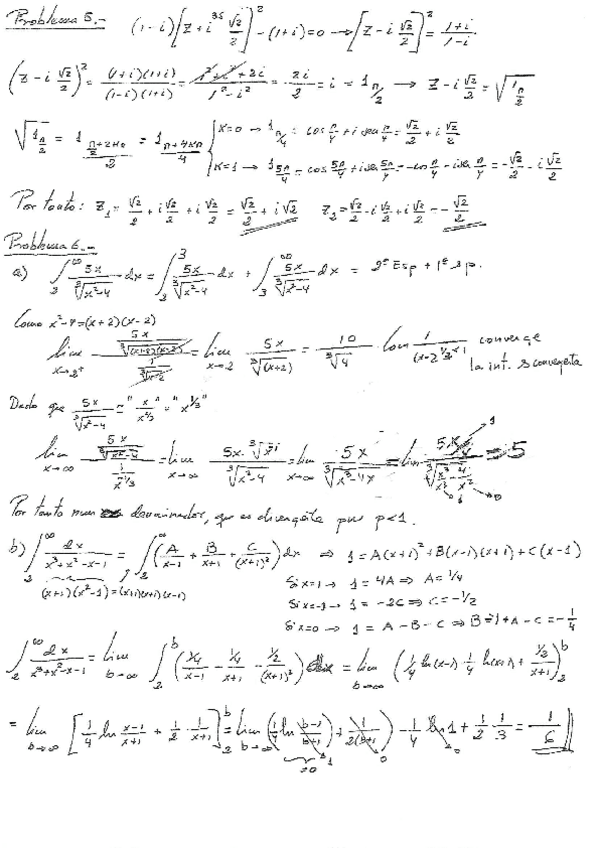 Problema 5.-
(1-i)[z+i^35 √2/2]^2-(1+i)=0 → [z-i √2/2]^2 = (1+i)/(1-i)
(z-i √2/2)^2 = (1+i)(1+i)/(1-i)(1+i) = (1^2+i^2+2i)/(1^2-i^2) = 2i/2 = i = 1_{π/2} → z-i √2/2 = √(1_{π/2})
√(1_{π/2}) = 1_{(π/2+2kπ)/2} = 1_{(π+4kπ)/4} { k=0 → 1_{π/4} = cos π/4 + i sen π/4 = √2/2 + i √2/2
k=1 → 1_{5π/4} = cos 5π/4 + i sen 5π/4 = -cos π/4 - i sen π/4 = -√2/2 - i √2/2
Por tanto: z_1 = √2/2 + i √2/2 + i √2/2 = √2/2 + i √2 z_2 = -√2/2 - i √2/2 + i √2/2 = -√2/2
Problema 6.-
a) ∫_2^∞ 5x/∛(x^2-4) dx = ∫_2^3 5x/∛(x^2-4) dx + ∫_3^∞ 5x/∛(x^2-4) dx = 2ª Esp + 1ª Esp.
Como x^2-4=(x+2)(x-2)
lim_{x→2+} (5x/∛((x+2)(x-2)))/(1/∛(x-2)) = lim_{x→2} 5x/∛(x+2) = 10/∛4 · Como 1/(x-2)^{1/3} converge
la int. es convergente
Dado que 5x/∛(x^2-4) ≈ "x/x^{2/3}" = "x^{1/3}"
lim_{x→∞} (5x/∛(x^2-4))/(1/x^{-1/3}) = lim_{x→∞} 5x·∛x^-1/∛(x^2-4) = lim_{x→∞} 5x/∛(x^3-4x) = lim 5x/∛(x^3/x^3-4/x^2) = 5
Por tanto denominador, que es divergente pues p<1.
b) ∫_2^∞ dx/(x^3+x^2-x-1) = ∫_2^∞ (A/(x-1) + B/(x+1) + C/(x+1)^2) dx ⇒ 1=A(x+1)^2+B(x-1)(x+1)+C(x-1)
(x+1)(x^2-1)=(x+1)(x+1)(x-1) Si x=1 → 1=4A ⇒ A=1/4
Si x=-1 → 1=-2C ⇒ C=-1/2
Si x=0 → 1=A-B-C ⇒ B=-1+A-C=-1/4
∫_2^∞ dx/(x^3+x^2-x-1) = lim_{b→∞} ∫_2^b (1/4/(x-1) - 1/4/(x+1) - 1/2/(x+1)^2) dx = lim_{b→∞} (1/4 ln(x-1) - 1/4 ln(x+1) + 1/2/(x+1))_2^b
= lim_{b→∞} [1/4 ln (x-1)/(x+1) + 1/2 · 1/(x+1)]_2^b = lim_{b→∞} (1/4 ln (b-1)/(b+1) + 1/2(b+1)) - 1/4 ln 1 + 1/2 1/3 = 1/6